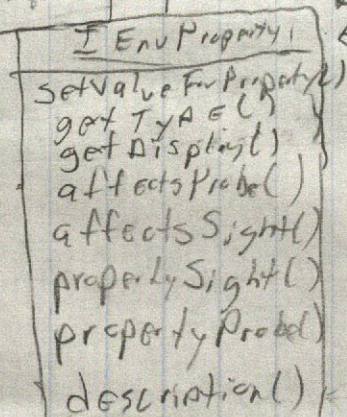 I EnvProperty
setValueForProperty()
getTYPE()
getDisplay()
affectsProbe()
affectsSight()
propertySight()
propertyProbe()
description()